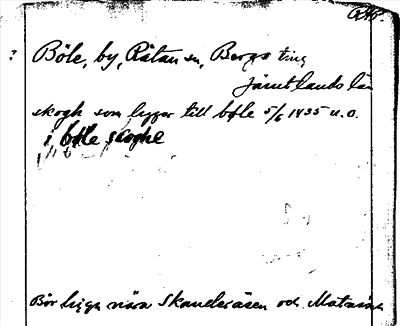 RAP.
? Böle, by, Rätan sn, Bergs ting
Jämtlands län
skogh som ligger till böle 5/6 1435 u.o.
iböle skoghe
Bör ligga nära Skanderåsen och